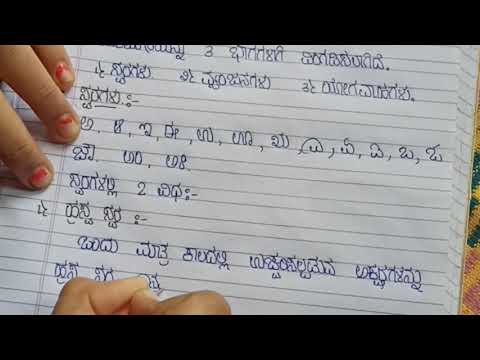 3 ಭಾಗಗಳಾಗಿ ವಿಂಗಡಿಸಲಾಗಿದೆ.
೧) ಸ್ವರಗಳು ೨) ವ್ಯಂಜನಗಳು ೩) ಯೋಗವಾಹಗಳು.
ಸ್ವರಗಳು :-
ಅ, ಆ, ಇ, ಈ, ಉ, ಊ, ಋ, ಎ, ಏ, ಐ, ಒ, ಓ
ಔ. ಅಂ, ಅಃ.
ಸ್ವರಗಳಲ್ಲಿ 2 ವಿಧ:-
೧) ಹ್ರಸ್ವ ಸ್ವರ :-
ಒಂದು ಮಾತ್ರ ಕಾಲದಲ್ಲಿ ಉಚ್ಚರಿಸಲ್ಪಡುವ ಅಕ್ಷರಗಳನ್ನು
ಹ್ರಸ್ವ ಸ್ವರ